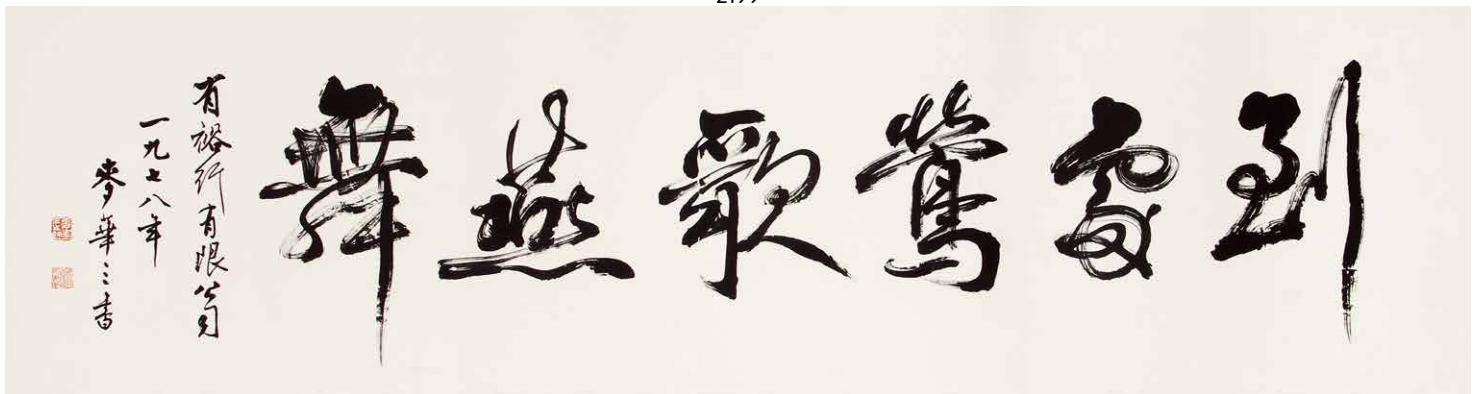 到處鶯歌燕舞
有裕行有限公司
一九七八年
麥華三書